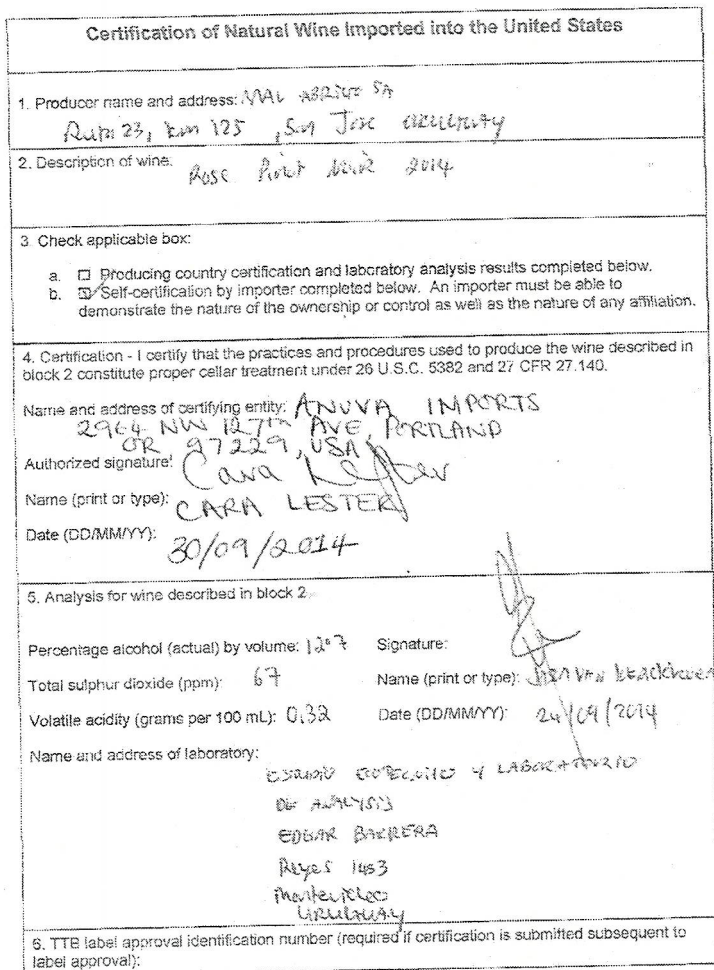 Certification of Natural Wine Imported into the United States
1. Producer name and address: MAL ABRIGO SA
Ruta 23, km 125 , San Jose URUGUAY
2. Description of wine: Rose Pinot Noir 2014
3. Check applicable box:
a. ☐ Producing country certification and laboratory analysis results completed below.
b. ☑ Self-certification by importer completed below. An importer must be able to
demonstrate the nature of the ownership or control as well as the nature of any affiliation.
4. Certification - I certify that the practices and procedures used to produce the wine described in
block 2 constitute proper cellar treatment under 26 U.S.C. 5382 and 27 CFR 27.140.
Name and address of certifying entity: ANUVA IMPORTS
2964 NW 127th AVE, PORTLAND
OR 97229, USA
Authorized signature: Cara Lester
Name (print or type): CARA LESTER
Date (DD/MM/YY): 30/09/2014
5. Analysis for wine described in block 2.
Percentage alcohol (actual) by volume: 12.7 Signature:
Total sulphur dioxide (ppm): 67 Name (print or type):
Volatile acidity (grams per 100 mL): 0.32 Date (DD/MM/YY): 24/09/2014
Name and address of laboratory:
Y LABORATORIO
DE ANALYSIS
EDGAR BARRERA
Reyes 1453
Montevideo
URUGUAY
6. TTB label approval identification number (required if certification is submitted subsequent to
label approval):